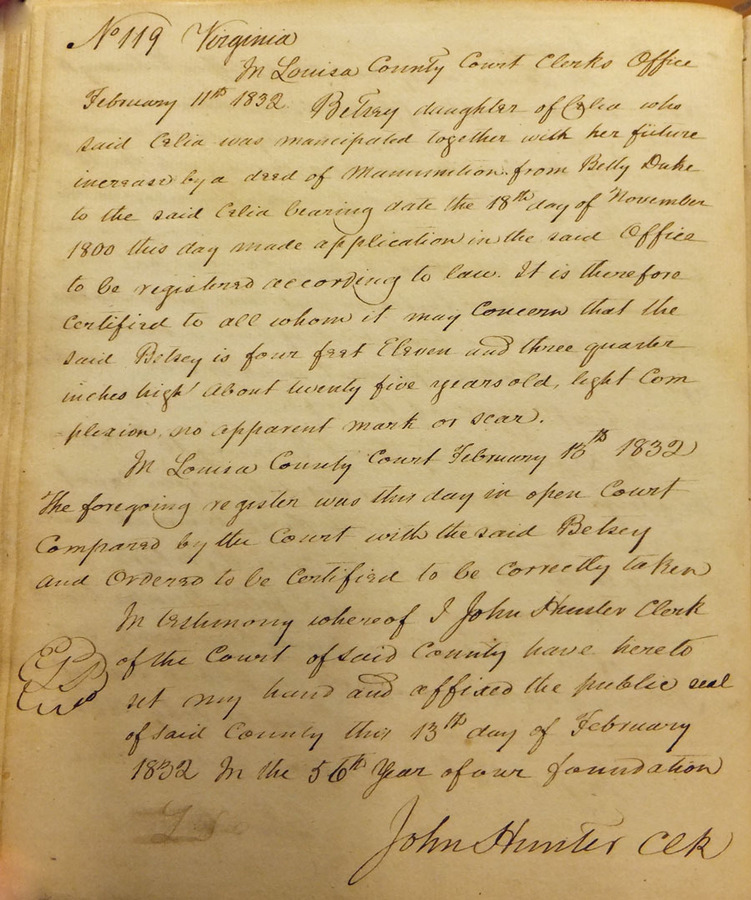 No 119 Virginia
In Louisa County Court Clerks Office
February 11th 1832. Betsey daughter of Celia who
said Celia was mancipated together with her future
increase by a deed of Manumition from Betty Duke
to the said Celia bearing date the 18th day of November
1800 this day made application in the said Office
to be registered according to law. It is therefore
Certified to all whom it may Concern that the
said Betsey is four feet Eleven and three quarter
inches high about twenty five years old, light Com
plexion, no apparent mark or scar.
In Louisa County Court February 13th 1832
The foregoing register was this day in open Court
Compared by the Court with the said Betsey
and Ordered to be Certified to be Correctly taken
In testimony whereof I John Hunter Clerk
of the Court of said County have hereto
set my hand and affixed the public seal
of said County this 13th day of February
1832 In the 56th Year of our foundation
John Hunter Clk